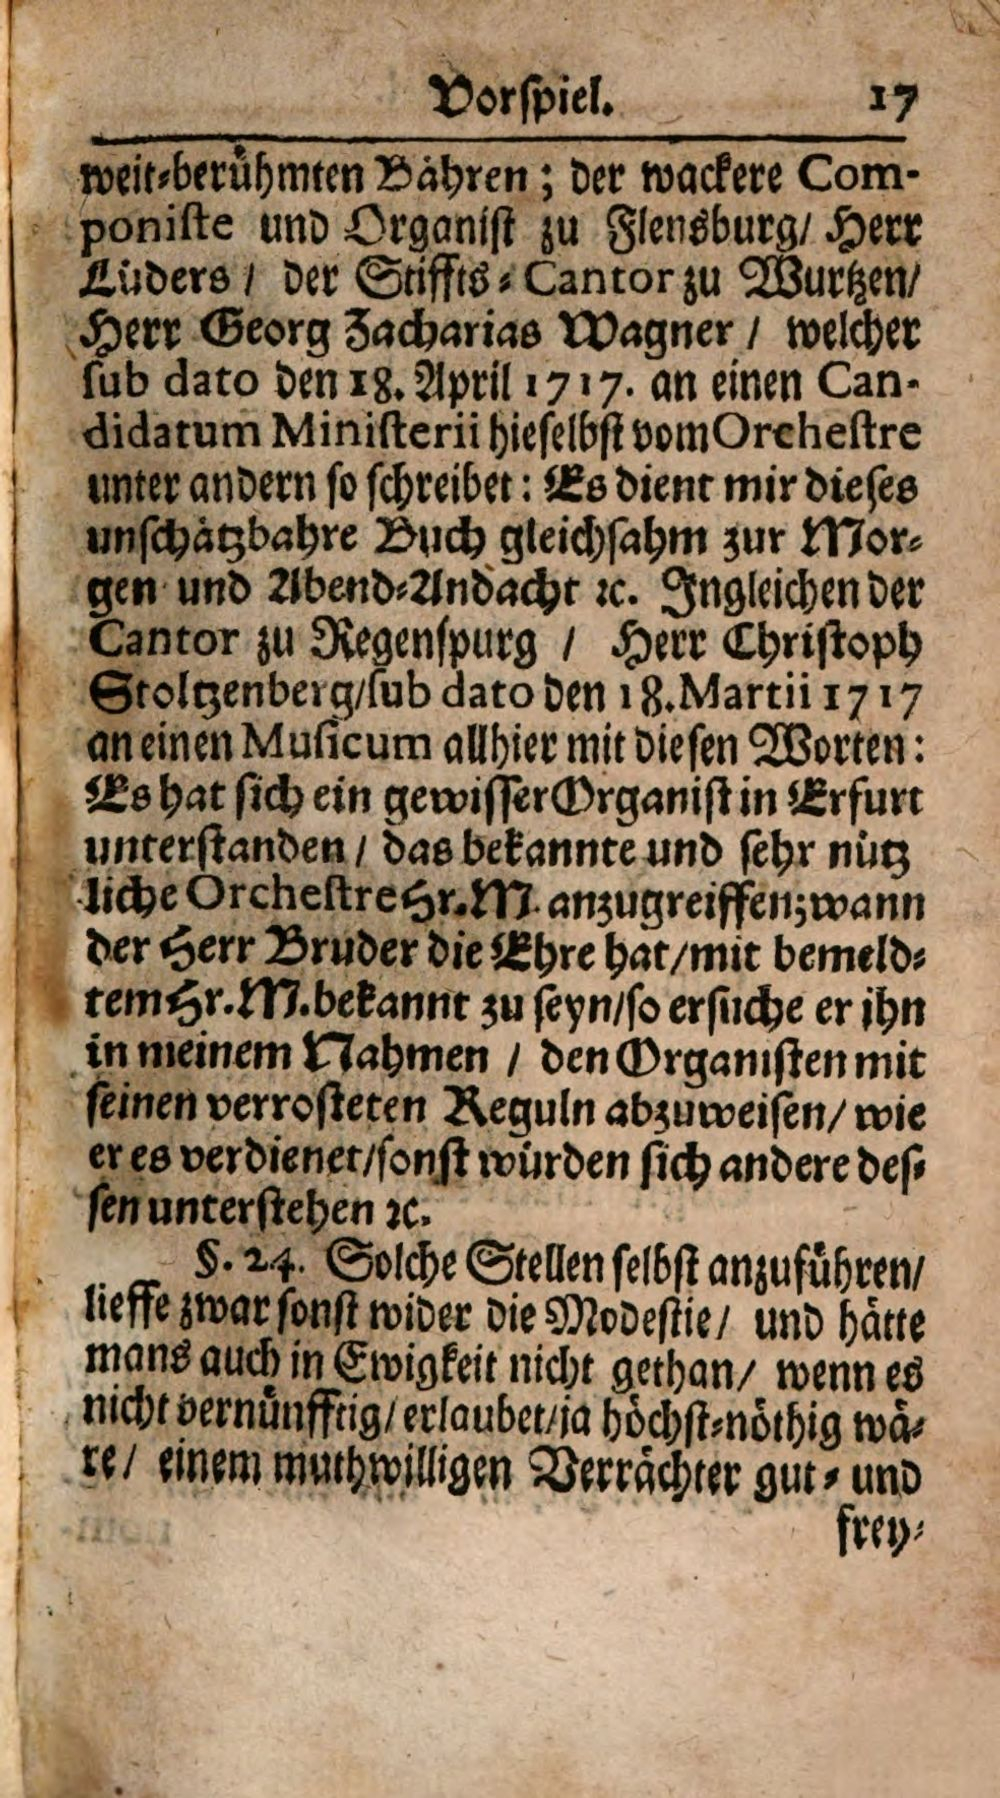 Vorſpiel. 17
weit⸗beruͤhmten Baͤhren; der wackere Com-
poniſte und Organiſt zu Flensburg/ Herr
Luͤders / der Stiffts⸗Cantor zu Wurtzen/
Herr Georg Zacharias Wagner / welcher
ſub dato den 18. April 1717. an einen Can-
didatum Miniſterii hieſelbſt vom Orcheſtre
unter andern ſo ſchreibet: Es dient mir dieſes
unſchaͤtzbahre Buch gleichſahm zur Mor⸗
gen und Abend⸗Andacht ꝛc. Ingleichen der
Cantor zu Regenſpurg / Herr Chriſtoph
Stoltzenberg/ſub dato den 18. Martii 1717
an einen Muſicum allhier mit dieſen Worten:
Es hat ſich ein gewiſſer Organiſt in Erfurt
unterſtanden / das bekannte und ſehr nuͤtz
liche Orcheſtre Hr. M. anzugreiffen; wann
der Herr Bruder die Ehre hat/mit bemeld⸗
tem Hr. M. bekannt zu ſeyn/ſo erſuche er ihn
in meinem Nahmen / den Organiſten mit
ſeinen verroſteten Reguln abzuweiſen/ wie
er es verdienet/ſonſt wuͤrden ſich andere deſ⸗
ſen unterſtehen ꝛc.
§. 24. Solche Stellen ſelbſt anzufuͤhren/
lieffe zwar ſonſt wider die Modeſtie/ und haͤtte
mans auch in Ewigkeit nicht gethan/ wenn es
nicht vernuͤnfftig/ erlaubet/ja hoͤchſt⸗noͤthig waͤ⸗
re/ einem muthwilligen Verraͤchter gut⸗ und
frey⸗